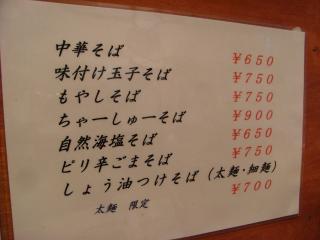 中華そば ￥650
味付け玉子そば ￥750
もやしそば ￥750
ちゃーしゅーそば ￥900
自然海塩そば ￥650
ピリ辛ごまそば ￥750
しょう油つけそば (太麺・細麺) ￥700
太麺 限定